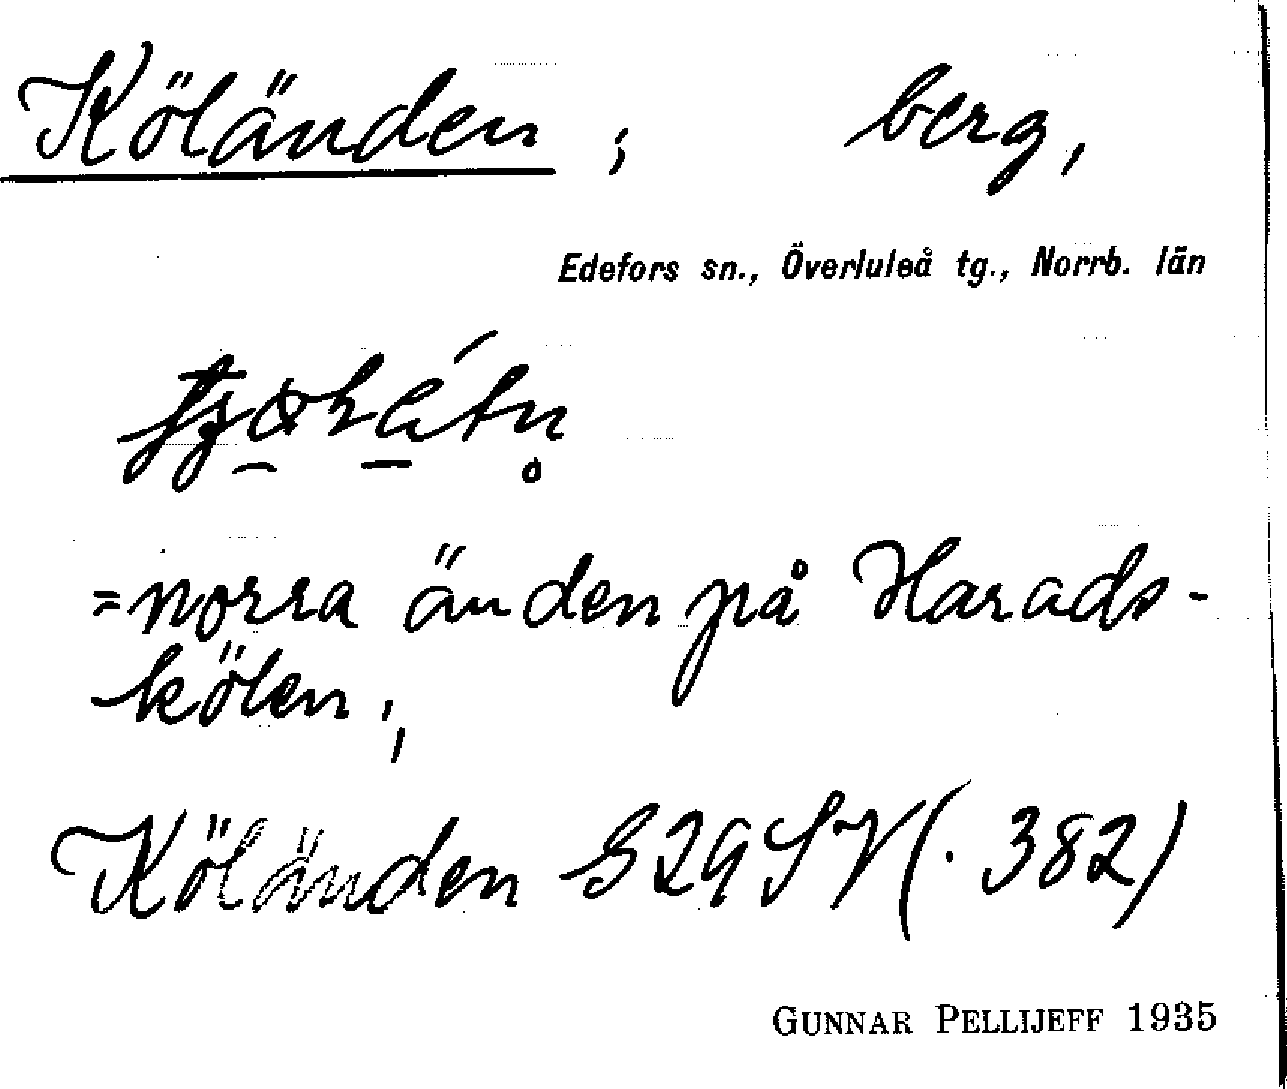 Köländen ; berg,
Edefors sn., Överluleå tg., Norrb. län
=norra änden på Harads-
kölen ;
Köländen S 29 SV (· 382)
GUNNAR PELLIJEFF 1935